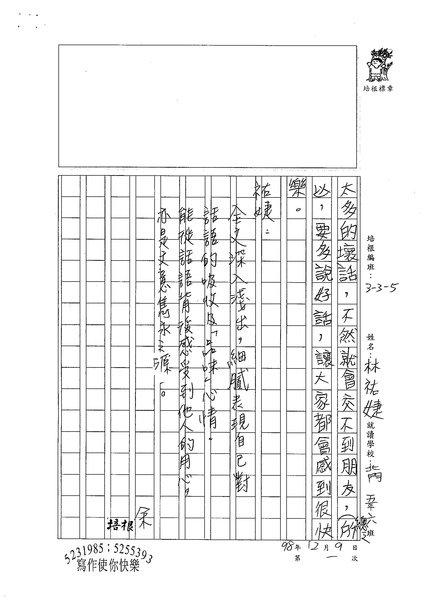 培根標章
培根編班：3-3-5
姓名：林祐婕
就讀學校：
五年六班
98年12月9日
第一次
太多的壞話，不然就會交不到朋友，所
以，要多說好話，讓大家都會感到很快
樂。
祐婕：
全文深入淺出，細膩表現自己對
話語的吸收及「品味」心情。
能從話語背後感受到他人的用心，
亦是文意雋永之源。
培根 余
5231985；5255393
寫作使你快樂